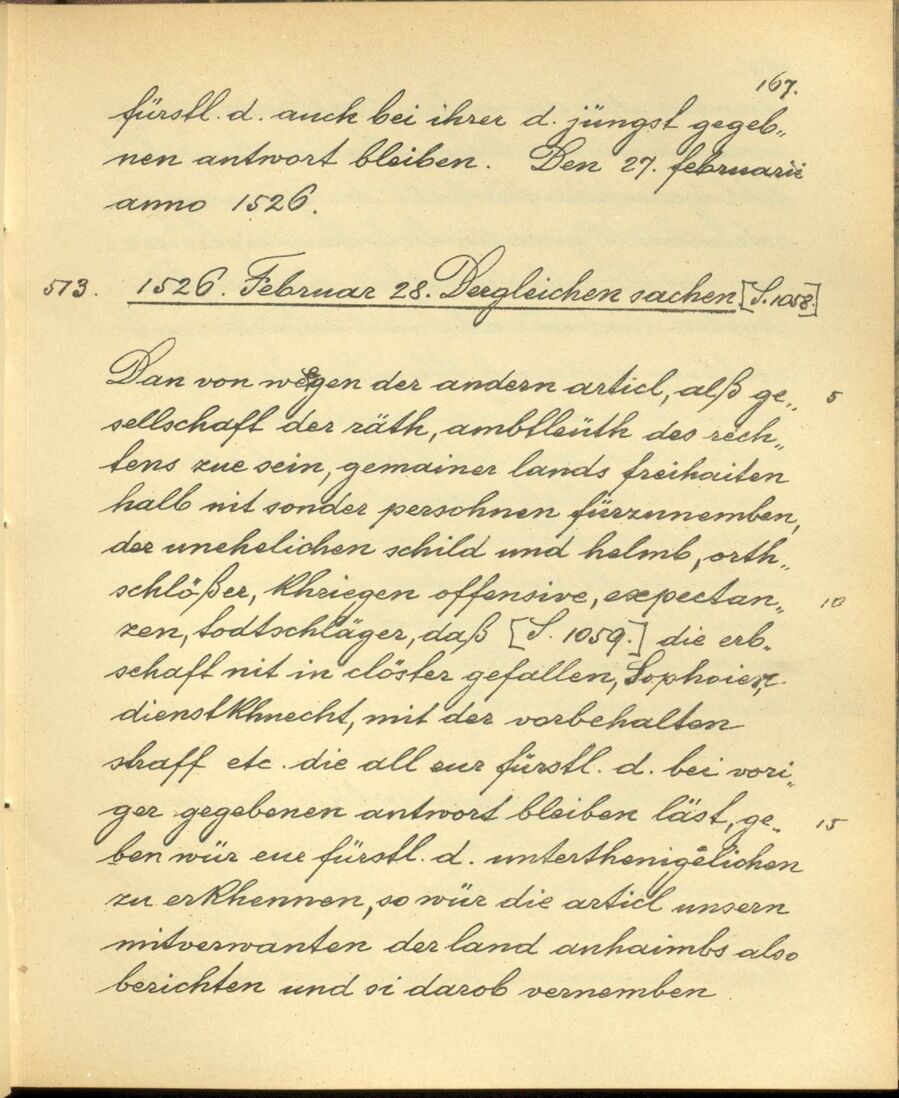 167.
fürstl. d. auch bei ihrer d. jüngst gegeb„
nen antwort bleiben. Den 27. februarii
anno 1526.
513. 1526. Februar 28. Dergleichen sachen [S. 1058.]
Dan von wegen der andern articl, alß ge„ 5
sellschaft der räth, ambtleüth des rech„
tens zue sein, gemainer lands freihaiten
halb nit sonder persohnen fürzunemben,
der unehelichen schild und helmb, orth„
schlößer, khriegen offensive, expectan„ 10
zen, todtschläger, daß [S. 1059.] die erb„
schaft nit in clöster gefallen, Sophoier,
dienstkhnecht, mit der vorbehalten
straff etc. die all eur fürstl. d. bei vori„
ger gegebenen antwort bleiben läst, ge„ 15
ben wür eur fürstl. d. unterthenigelichen
zu erkhennen, so wür die articl unsern
mitverwanten der land anhaimbs also
berichten und si darob vernemben